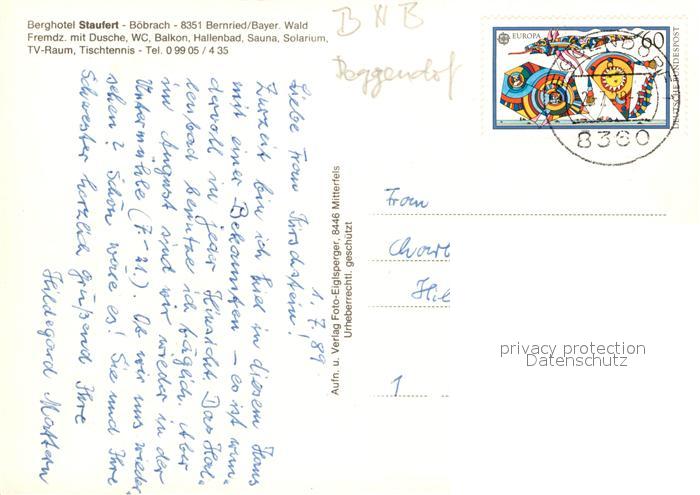 Berghotel Staufert - Böbrach - 8351 Bernried/Bayer. Wald
Fremdz. mit Dusche, WC, Balkon, Hallenbad, Sauna, Solarium,
TV-Raum, Tischtennis - Tel. 0 99 05 / 4 35
BNB
Deggendorf
EUROPA 60
DEUTSCHE BUNDESPOST
8360
1.7.89
Liebe Frau
Zurzeit bin ich hier in diesem Haus
mit einer Bekannten – es ist wun-
dervoll in jeder Hinsicht. Das Hal-
lenbad benütze ich täglich. Aber
im August sind wir wieder in der
Untermühle (7.-21.). Ob wir uns wieder-
sehen? Schön wäre es! Sie und Ihre
Schwester herzlich grüßend Ihre
Hildegard Mattern
Aufn. u. Verlag Foto-Eiglsperger, 8446 Mitterfels
Urheberrechtl. geschützt
Frau
Hil
1
privacy protection
Datenschutz